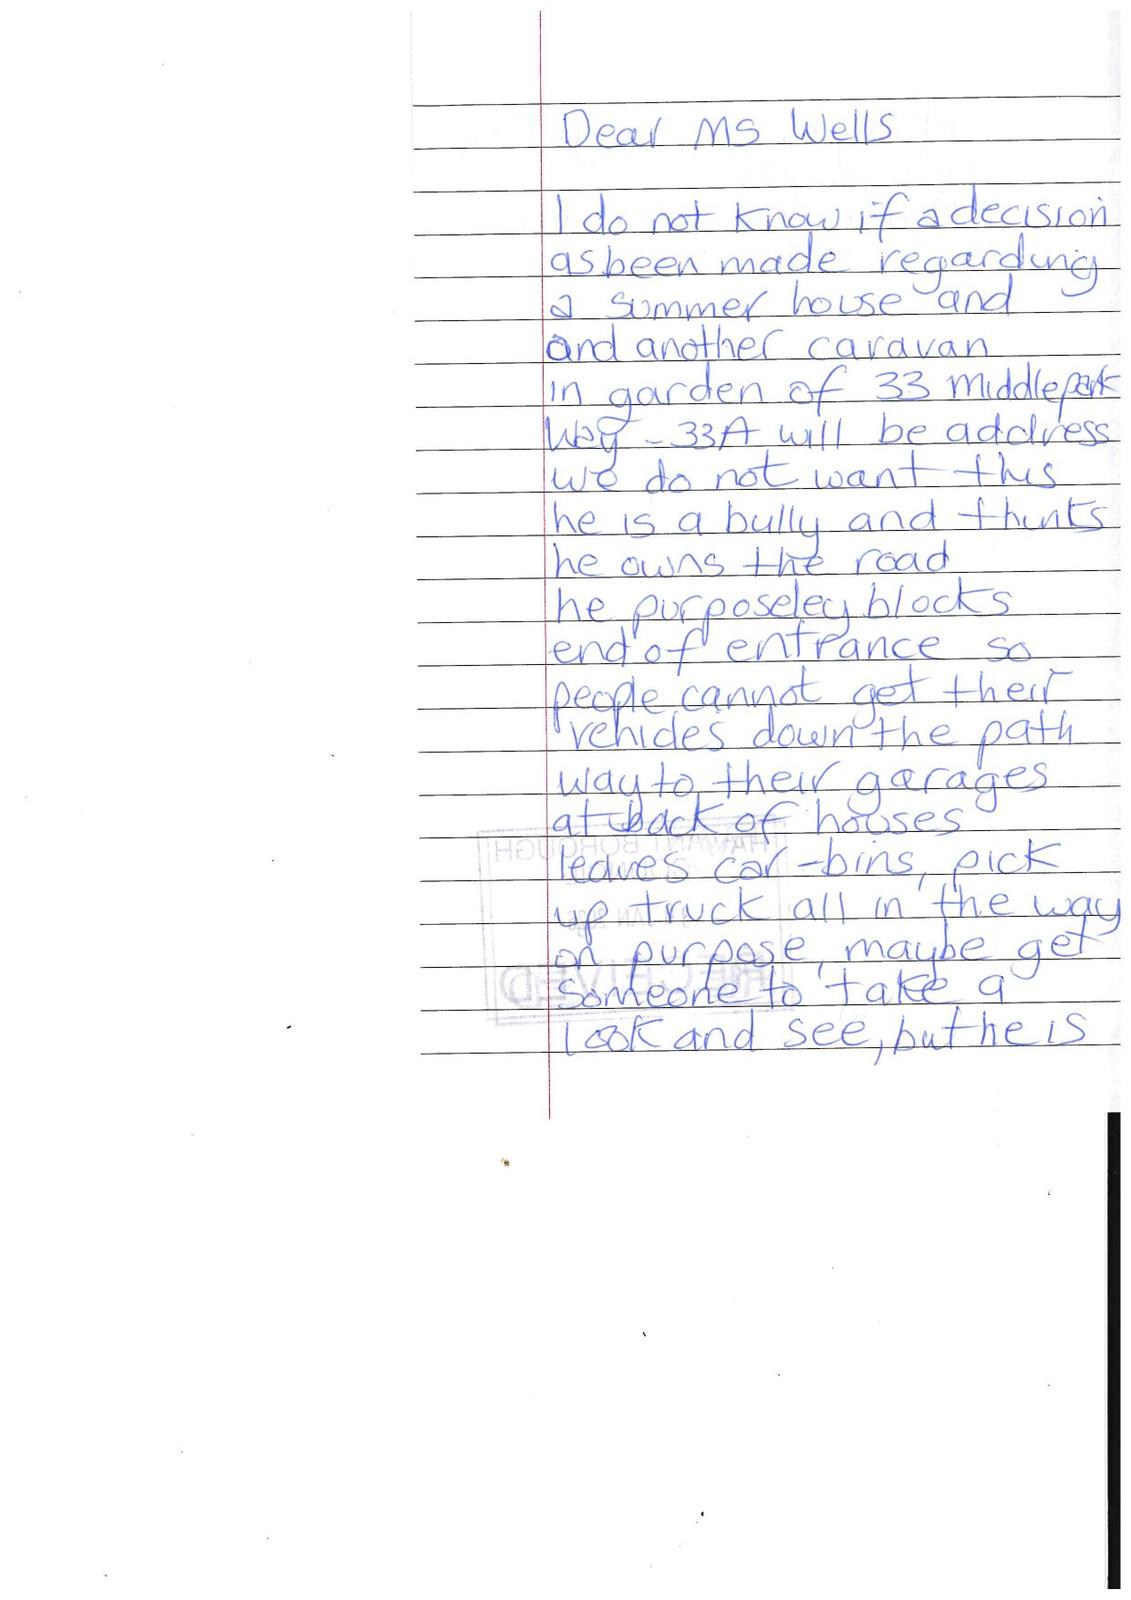 Dear Ms Wells
I do not know if a decision
as been made regarding
a summer house and
and another caravan
in garden of 33 Middlepark
Way - 33A will be address
we do not want this
he is a bully and thinks
he owns the road
he purposeley blocks
end of entrance so
people cannot get their
vehicles down the path
way to their garages
at back of houses
leaves car - bins, pick
up truck all in the way
on purpose, maybe get
someone to take a
look and see, but he is
HAVANT BOROUGH
JAN
RECEIVED